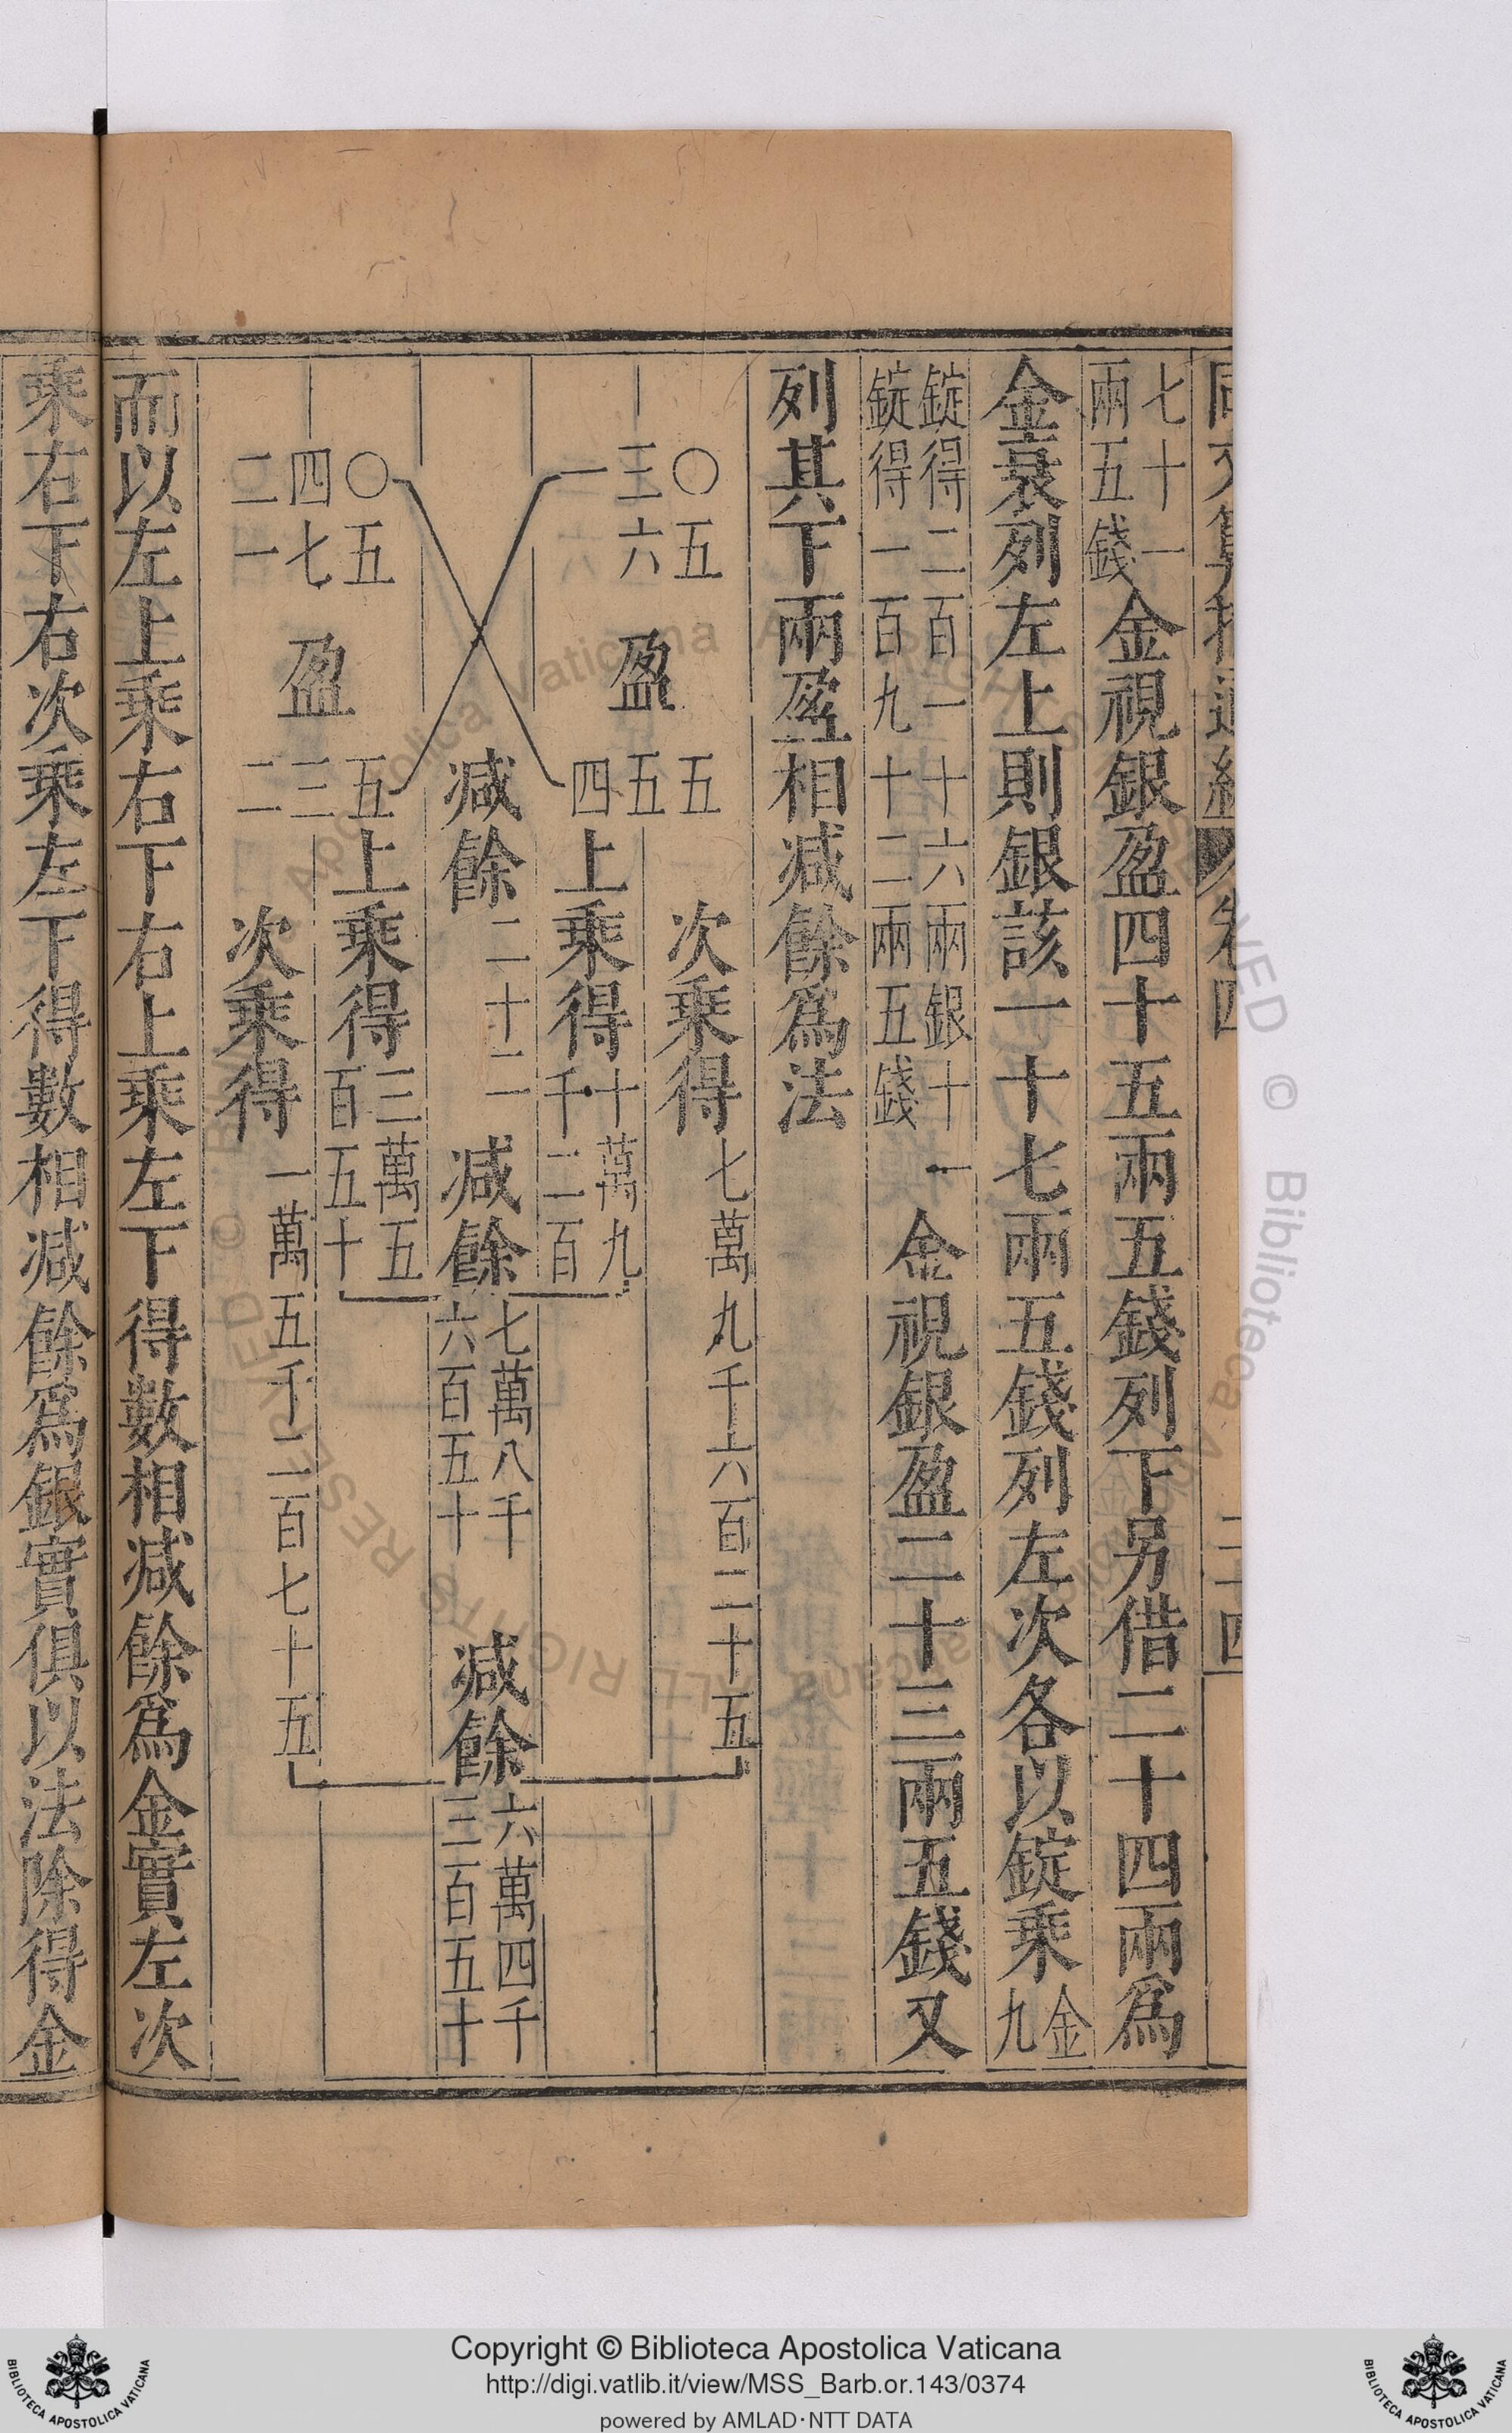 同文算指通編 卷四
七十一
兩五錢
金視銀盈四十五兩五錢列下另借二十四兩爲
金衰列左上則銀該一十七兩五錢列左次各以錠乘
金
九
錠得二百一十六兩銀十一
錠得一百九十二兩五錢
金視銀盈二十三兩五錢又
列其下兩盈相减餘爲法
○五
三六
一
盈
五
五
四
次乘得七萬九千六百二十五
上乘得
十萬九
千二百
减餘二十二
减餘
七萬八千
六百五十
减餘
六萬四千
三百五十
○五
四七
二一
盈
五
三
二
上乘得
三萬五
百五十
次乘得一萬五千二百七十五
而以左上乘右下右上乘左下得數相减餘爲金實左次
乘右下右次乘左下得數相减餘爲銀實俱以法除得金
Copyright © Biblioteca Apostolica Vaticana
http://digi.vatlib.it/view/MSS_Barb.or.143/0374
powered by AMLAD·NTT DATA
BIBLIOTECA APOSTOLICA VATICANA
BIBLIOTECA APOSTOLICA VATICANA